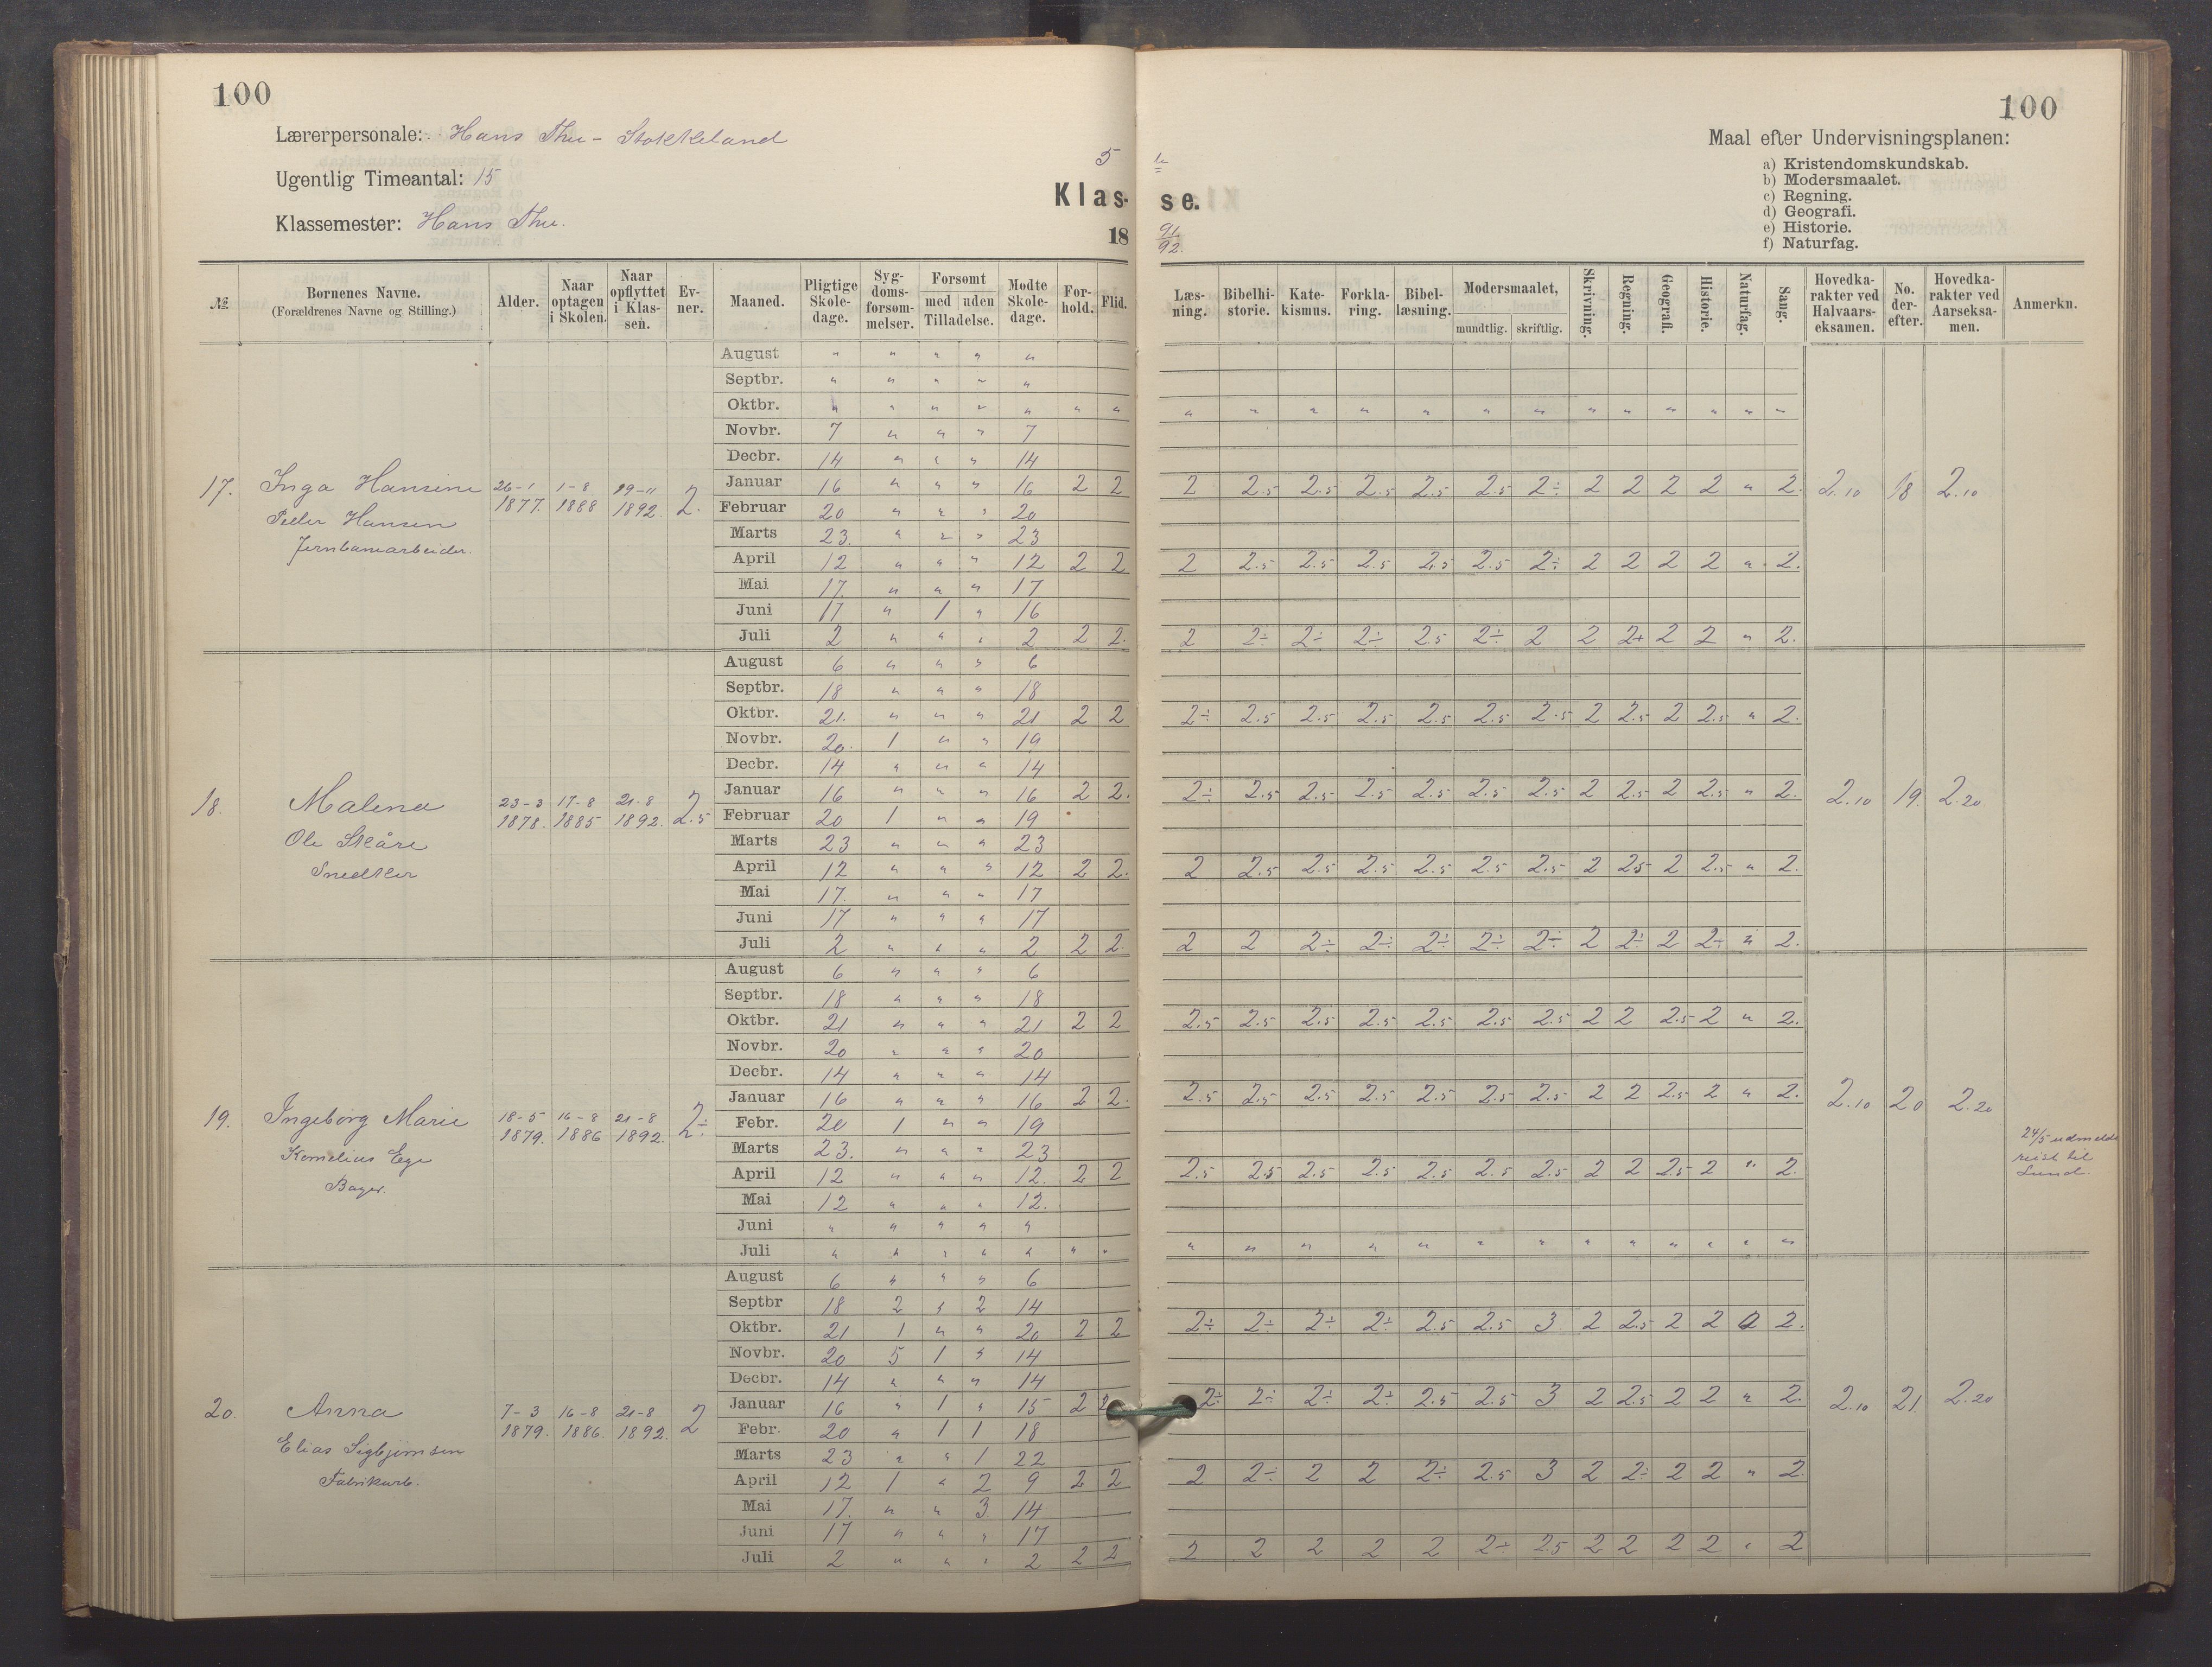 100
100
Lærerpersonale: Hans Thu - Stokkeland
Ugentlig Timeantal: 15
Klassemester: Hans Thu.
5 te
Klasse.
18 91/92.
Maal efter Undervisningsplanen:
a) Kristendomskundskab.
b) Modersmaalet.
c) Regning.
d) Geografi.
e) Historie.
f) Naturfag.
№ | Børnenes Navne. (Forældrenes Navne og Stilling.) | Alder. | Naar optagen i Skolen. | Naar opflyttet i Klassen. | Evner. | Maaned. | Pligtige Skoledage. | Sygdomsforsømmelser. | Forsømt med | uden Tilladelse. | Mødte Skoledage. | Forhold. | Flid. | Læsning. | Bibelhistorie. | Katekismus. | Forklaring. | Bibellæsning. | Modersmaalet, mundtlig. | skriftlig. | Skrivning. | Regning. | Geografi. | Historie. | Naturfag. | Sang. | Hovedkarakter ved Halvaarseksamen. | No. derefter. | Hovedkarakter ved Aarseksamen. | Anmerkn.
17. Inga Hansine 26-1 1877. 1-8 1888 19-11 1892. 2. 2.10 18 2.10
Peder Hansen
Jernbanearbeider.
August " " " " "
Septbr. " " " " "
Oktbr. " " " " " " " " " " " " " " " " " " " "
Novbr. 7 " " " 7
Decbr. 14 " " " 14
Januar 16 " " " 16 2 2 2 2.5 2.5 2.5 2.5 2.5 2÷ 2 2 2 2 " 2.
Februar 20 " " " 20
Marts 23. " " " 23
April 12 " " " 12 2 2 2 2.5 2.5 2.5 2.5 2.5 2÷ 2 2 2 2 " 2.
Mai 17. " " " 17
Juni 17 " 1 " 16
Juli 2 " " " 2 2 2. 2 2÷ 2÷ 2÷ 2.5 2÷ 2 2 2+ 2 2 " 2.
18. Malena 23-3 1878. 17-8 1885 21-8 1892. 2 2.5 2.10 19. 2.20
Ole Skåre
Snedker
August 6 " " " 6
Septbr. 18 " " " 18
Oktbr. 21. " " " 21 2 2 2÷ 2.5 2.5 2.5 2.5 2.5 2.5 2 2.5 2 2.5 " 2.
Novbr. 20. 1 " " 19
Decbr. 14 " " " 14
Januar 16 " " " 16 2 2. 2÷ 2.5 2.5 2.5 2.5 2.5 2.5 2 2.5 2 2.5 " 2.
Februar 20 1 " " 19
Marts 23 " " " 23
April 12 " " " 12 2 2. 2 2.5 2.5 2.5 2.5 2.5 2.5 2 25 2 2.5 " 2.
Mai 17. " " " 17
Juni 17 " " " 17
Juli 2 " " " 2 2 2. 2 2 2÷ 2÷ 2÷ 2÷ 2÷ 2 2÷ 2 2÷ " 2.
19. Ingeborg Marie 18-5 1879. 16-8 1886 21-8 1892. 2÷ 2.10 20 2.20
Kornelius Ege
Bager.
24/5 udmeldt
reist til
Lund.
August 6 " " " 6
Septbr. 18 " " " 18
Oktbr. 21 " " " 21 2 2 2.5 2.5 2.5 2.5 2.5 2.5 2.5 2 2 2.5 2 " 2.
Novbr. 20 " " " 20
Decbr. 14 " " " 14
Januar 16 " " " 16 2 2. 2.5 2.5 2.5 2.5 2.5 2.5 2.5 2 2 2.5 2 " 2.
Febr. 20 1 " " 19
Marts 23. " " " 23
April 12 " " " 12. 2 2 2.5 2.5 2.5 2.5 2.5 2.5 2.5 2 2 2.5 2 " 2.
Mai 12 " " " 12.
Juni " " " " "
Juli " " " " " " " " " " " " " " " " " " " "
20. Anna 7-3 1879. 16-8 1886. 21-8 1892. 2 2.10 21. 2.20
Elias Sigbjørnsen
Fabrikarb.
August 6 " " " 6
Septbr 18 2 " 2 14
Oktbr. 21 1 " " 20 2 2 2÷ 2÷ 2÷ 2÷ 2.5 2.5 3 2 2.5 2 2 2.
Novbr. 20 5 1 " 14
Decbr. 14 " " " 14
Januar 16 " 1 " 15 2 2 2÷ 2÷ 2÷ 2÷ 2.5 2.5 3 2 2.5 2 2 " 2.
Febr. 20 " 1 1 18
Marts 23 " " 1 22
April 12 1 " 2 9 2 2 2 2÷ 2 2 2÷ 2.5 3 2 2÷ 2 2 " 2.
Mai 17. " " 3. 14
Juni 17 " " " 17
Juli 2 " " " 2 2 2 2 2 2 2 2 2÷ 2.5 2 2 2 2 " 2